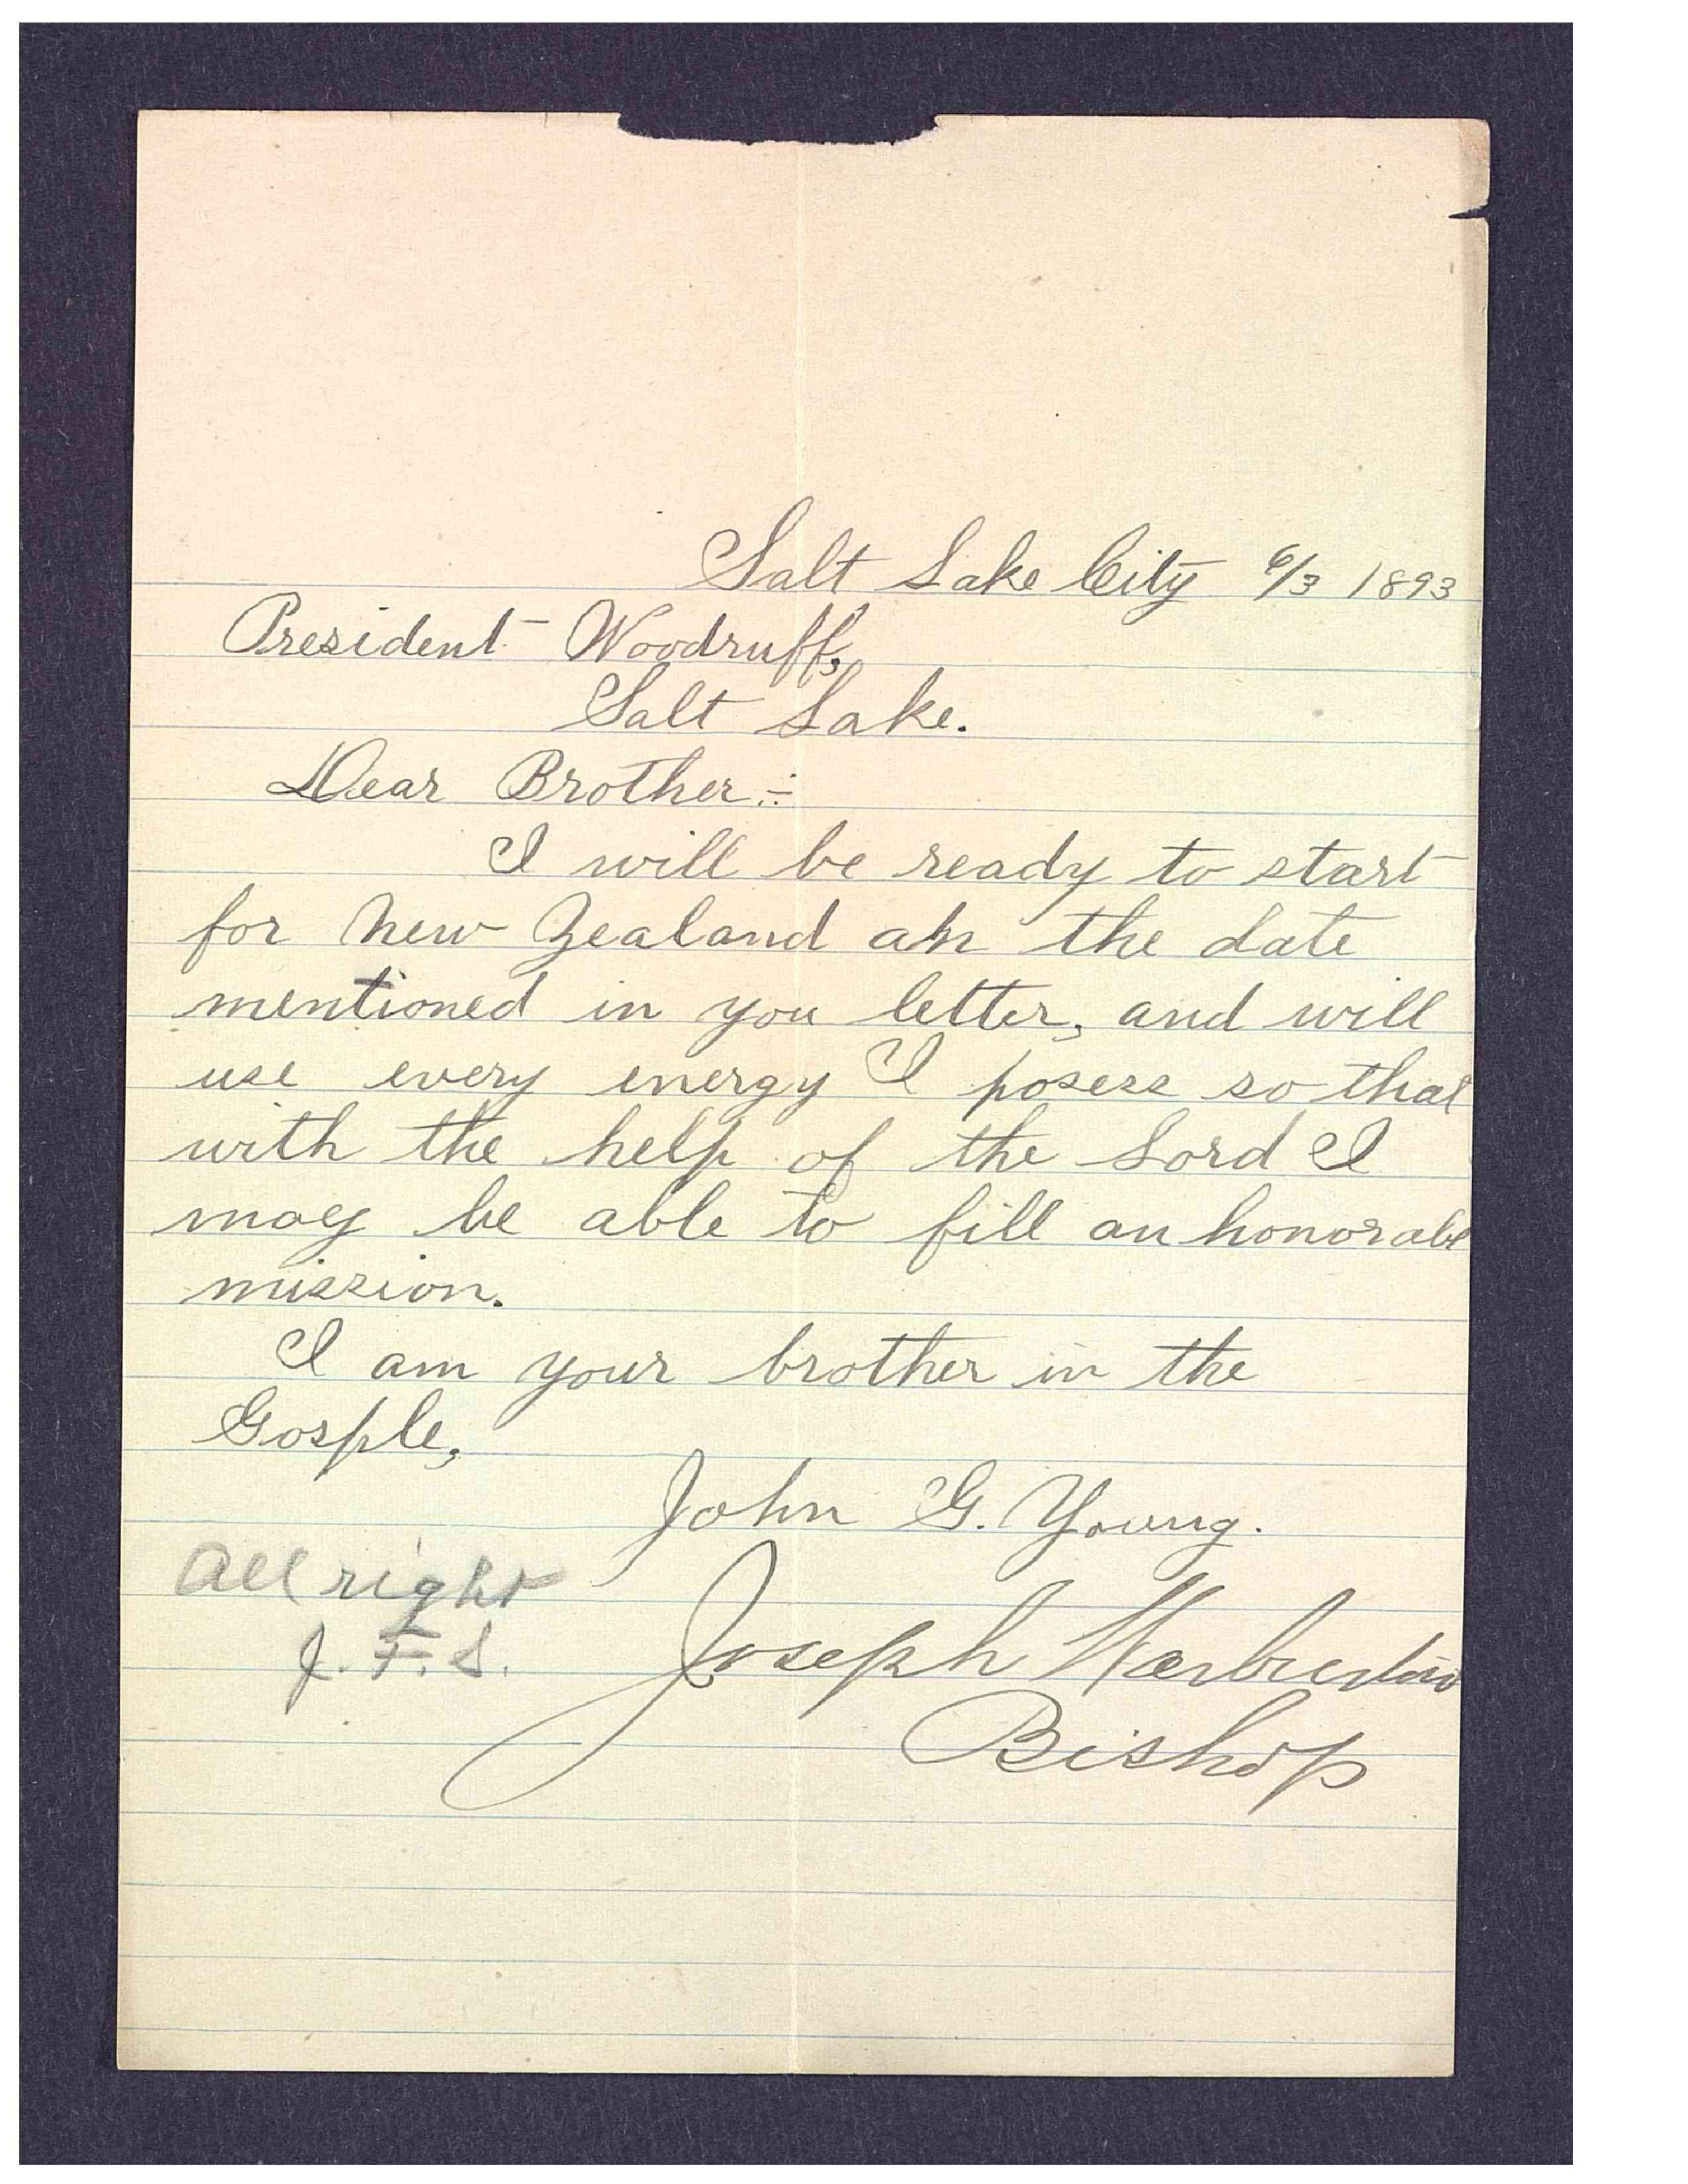 Salt Lake City 6/3 1893
President Woodruff,
Salt Lake.
Dear Brother:-
I will be ready to start
for New Zealand the date
mentioned in you letter, and will
use every energy I posess so that
with the help of the Lord I
may be able to fill an honorabl
mission.
I am your brother in the
Gosple,
John G. Young.
All right
J. F. S.
Joseph
Bishop